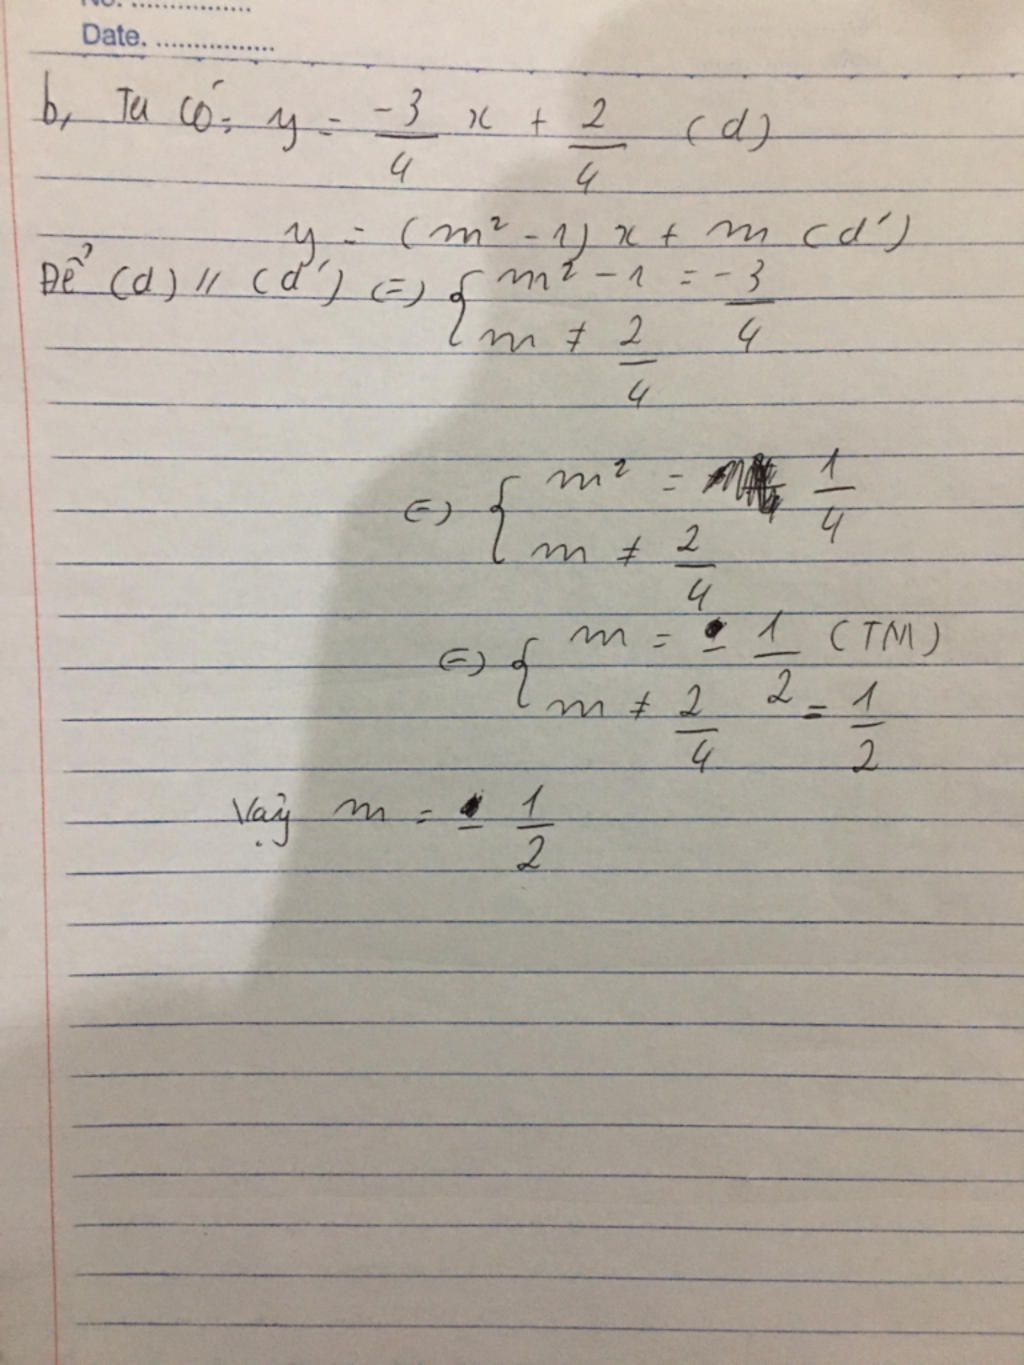 No. ..................
Date. ..................
b, Ta có: y = -3/4 x + 2/4 (d)
y = (m² - 1) x + m (d')
Để (d) // (d') (=) { m² - 1 = -3/4
m ≠ 2/4
(=) { m² = 1/4
m ≠ 2/4
(=) { m = - 1/2 (TM)
m ≠ 2/4 = 1/2
Vậy m = - 1/2